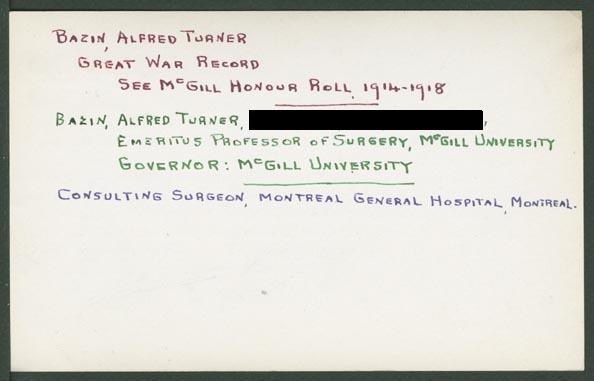 BAZIN, ALFRED TURNER
GREAT WAR RECORD
SEE McGILL HONOUR ROLL, 1914-1918
BAZIN, ALFRED TURNER, ,
EMERITUS PROFESSOR OF SURGERY, McGILL UNIVERSITY
GOVERNOR: McGILL UNIVERSITY
CONSULTING SURGEON, MONTREAL GENERAL HOSPITAL, MONTREAL.